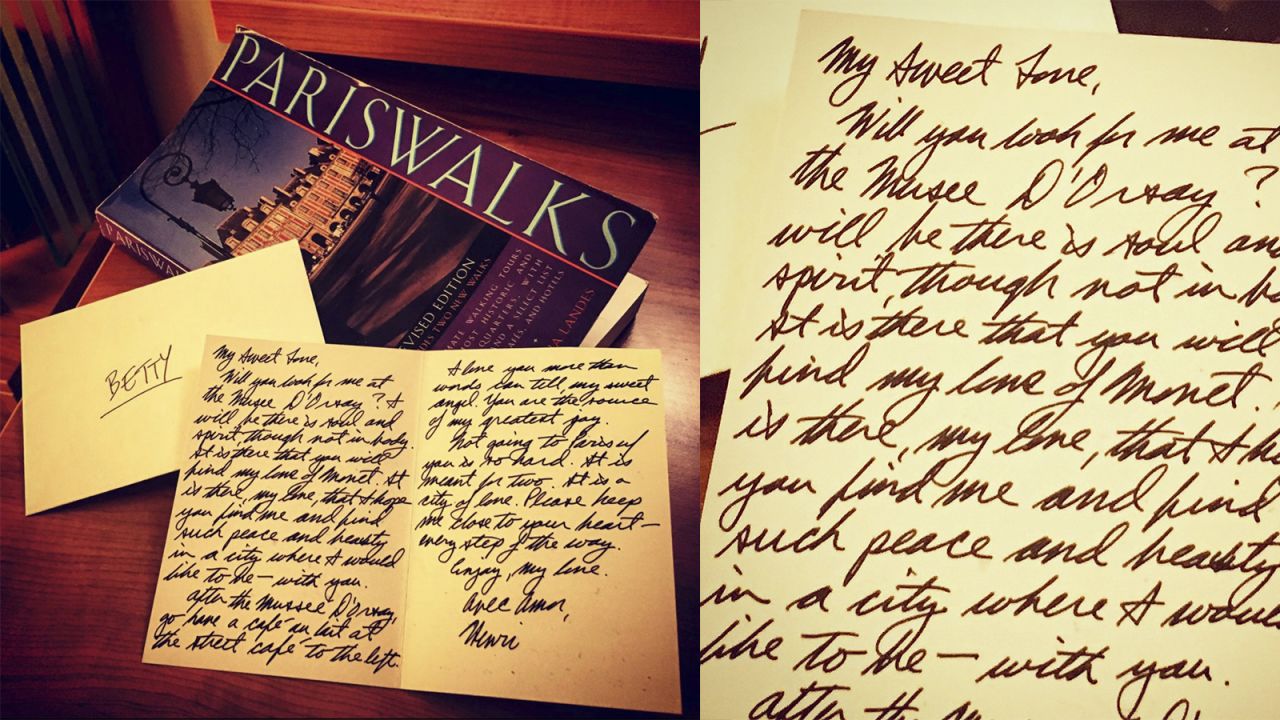 PARISWALKS
PARISWA
VISED EDITION
TWO NEW WALKS
WALKING TOURS
HISTORIC AND
QUARTERS WITH
A SELECT LIST
AND HOTELS
LANDES
BETTY
My Sweet Love,
Will you look for me at
the Musee D'Orsay? I
will be there is soul and
spirit, though not in body.
It is there that you will
find my love of Monet. It
is there, my love, that I hope
you find me and find
such peace and beauty
in a city where I would
like to be — with you.
After the Mussee D'Orsay,
go have a café au lait at
the street café to the left.
I love you more than
words can tell my sweet
angel. You are the source
of my greatest joy.
Not going to Paris w/
you is so hard. It is
meant for two. It is a
city of love. Please keep
me close to your heart —
every step of the way.
Enjoy, my love.
Avec Amor,
Henri
My Sweet Love,
Will you look for me at
the Musee D'Orsay?
will be there is soul and
spirit, though not in bo
It is there that you will
find my love of Monet.
is there, my love, that I ho
you find me and find
such peace and beauty
in a city where I woul
like to be — with you.
After the Mussee D'Orsay